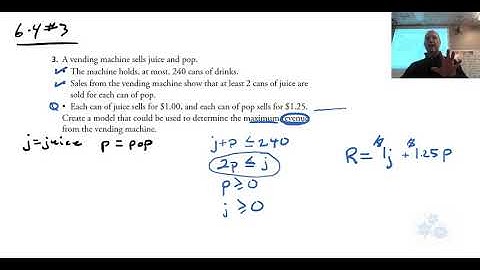 6.4 #3
3. A vending machine sells juice and pop.
• The machine holds, at most, 240 cans of drinks.
• Sales from the vending machine show that at least 2 cans of juice are
sold for each can of pop.
• Each can of juice sells for $1.00, and each can of pop sells for $1.25.
Create a model that could be used to determine the maximum revenue
from the vending machine.
j=juice p=pop
j+p ≤ 240
2p ≤ j
p ≥ 0
j ≥ 0
R = $1j + $1.25p